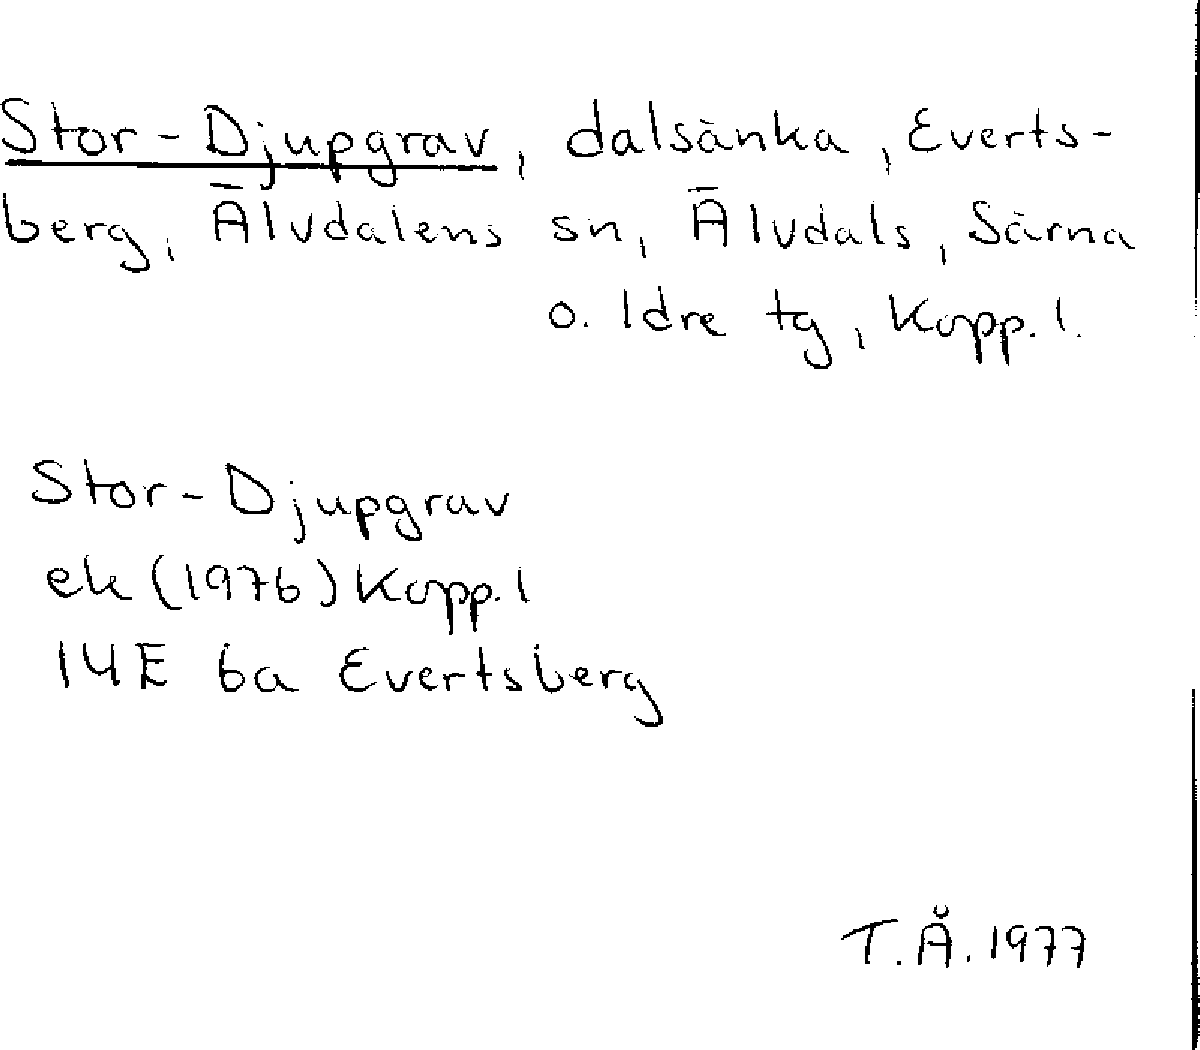 Stor-Djupgrav, dalsänka, Everts-
berg, Älvdalens sn, Älvdals, Särna
o. Idre tg, Kopp. l.
Stor-Djupgrav
ek (1976) Kopp. l
14E 6a Evertsberg
T.Å. 1977